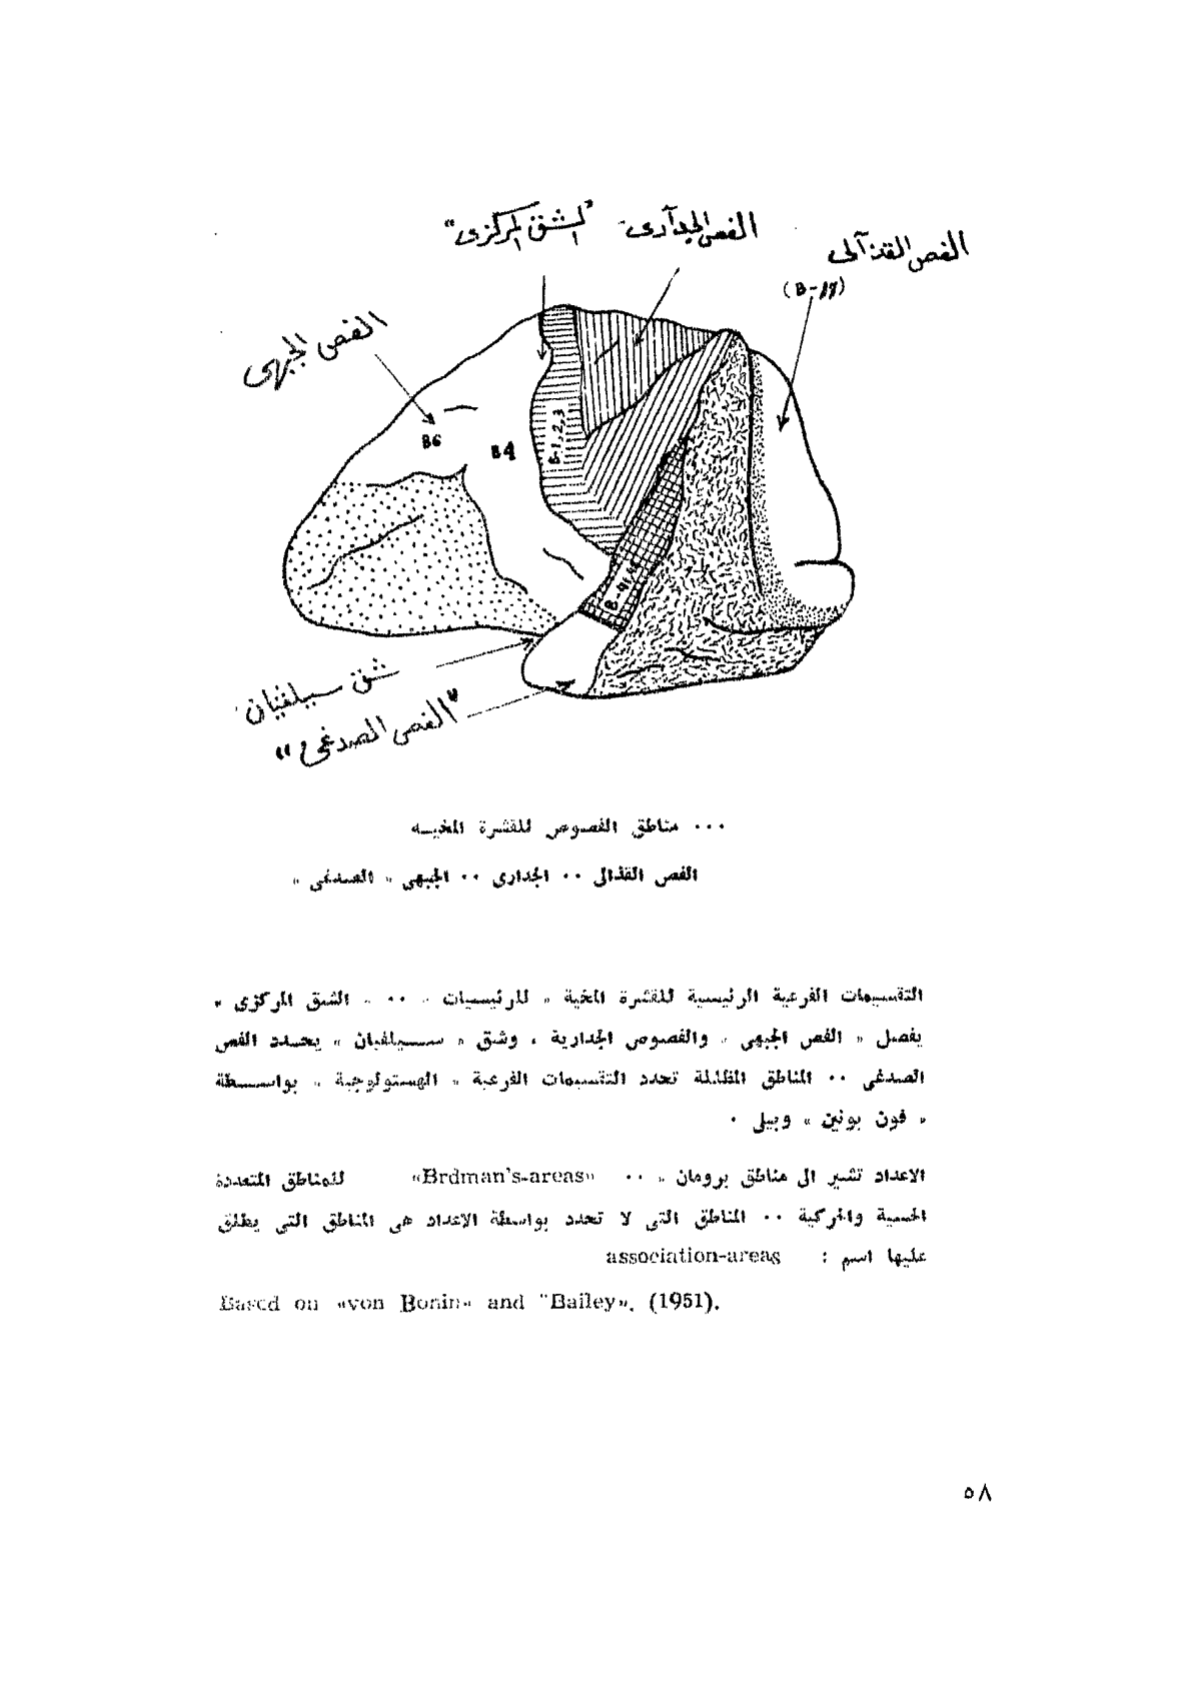 "الشق المركزى"
الفص الجدآرى
الفص القذآلى
(B-17)
الفص الجبهى
B6
B4
B-1,2,3
B-41,42
شق سيلفيان
"الفص الصدغى"
... مناطق الفصوص للقشرة المخيـه
الفص القذالى .. الجدارى .. الجبهى « الصدغى »
التقسيمات الفرعية الرئيسية للقشرة المخية « للرئيسيات » .. « الشق المركزى »
يفصل « الفص الجبهى » والفصوص الجدارية ، وشق « سـيلفيان » يحـدد الفص
الصدغى .. المناطق المظللة تحدد التقسيمات الفرعية « الهستولوجية » بواسـطة
« فون بونين » وبيلى .
الاعداد تشير الى مناطق برومان » .. «Brdman's-areas» للمناطق المتعددة
الحسية والحركية .. المناطق التى لا تحدد بواسطة الاعداد هى المناطق التى يطلق
عليها اسم : association-areas
Based on «von Bonin» and "Bailey». (1951).
٥٨